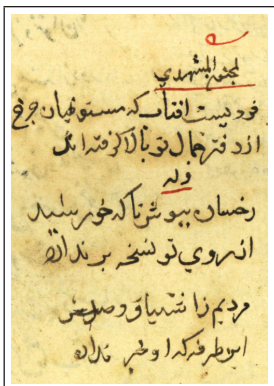 لمجنون المشهدي
فردیست افتاب که مستوفیان چرخ
از دفتر جمال تو بالا گرفته اند
وله
رخسان بپوش تا که خورشید
از روی تو نسخه بر ندارد
مردیم ز اشتیاق وصلش
این طرفه که او خبر ندارد